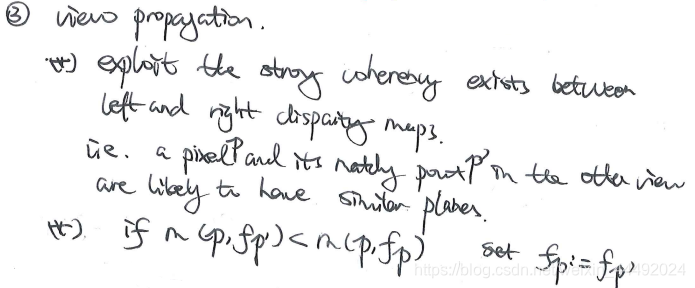 ③ view propagation.
*) exploit the strong coherency exists between
left and right disparity maps.
i.e. a pixel p and its match point p' in the other view
are likely to have similar planes.
*) if m(p, fp') < m(p, fp) set fp := fp'
https://blog.csdn.net/ 492024